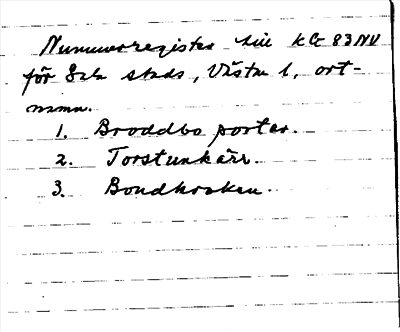 Nummerregister till KG 83 NV
för Sala stads, Västra l, ort-
namn.
1. Broddbo portar.
2. Torstunkärr.
3. Bondkroken.